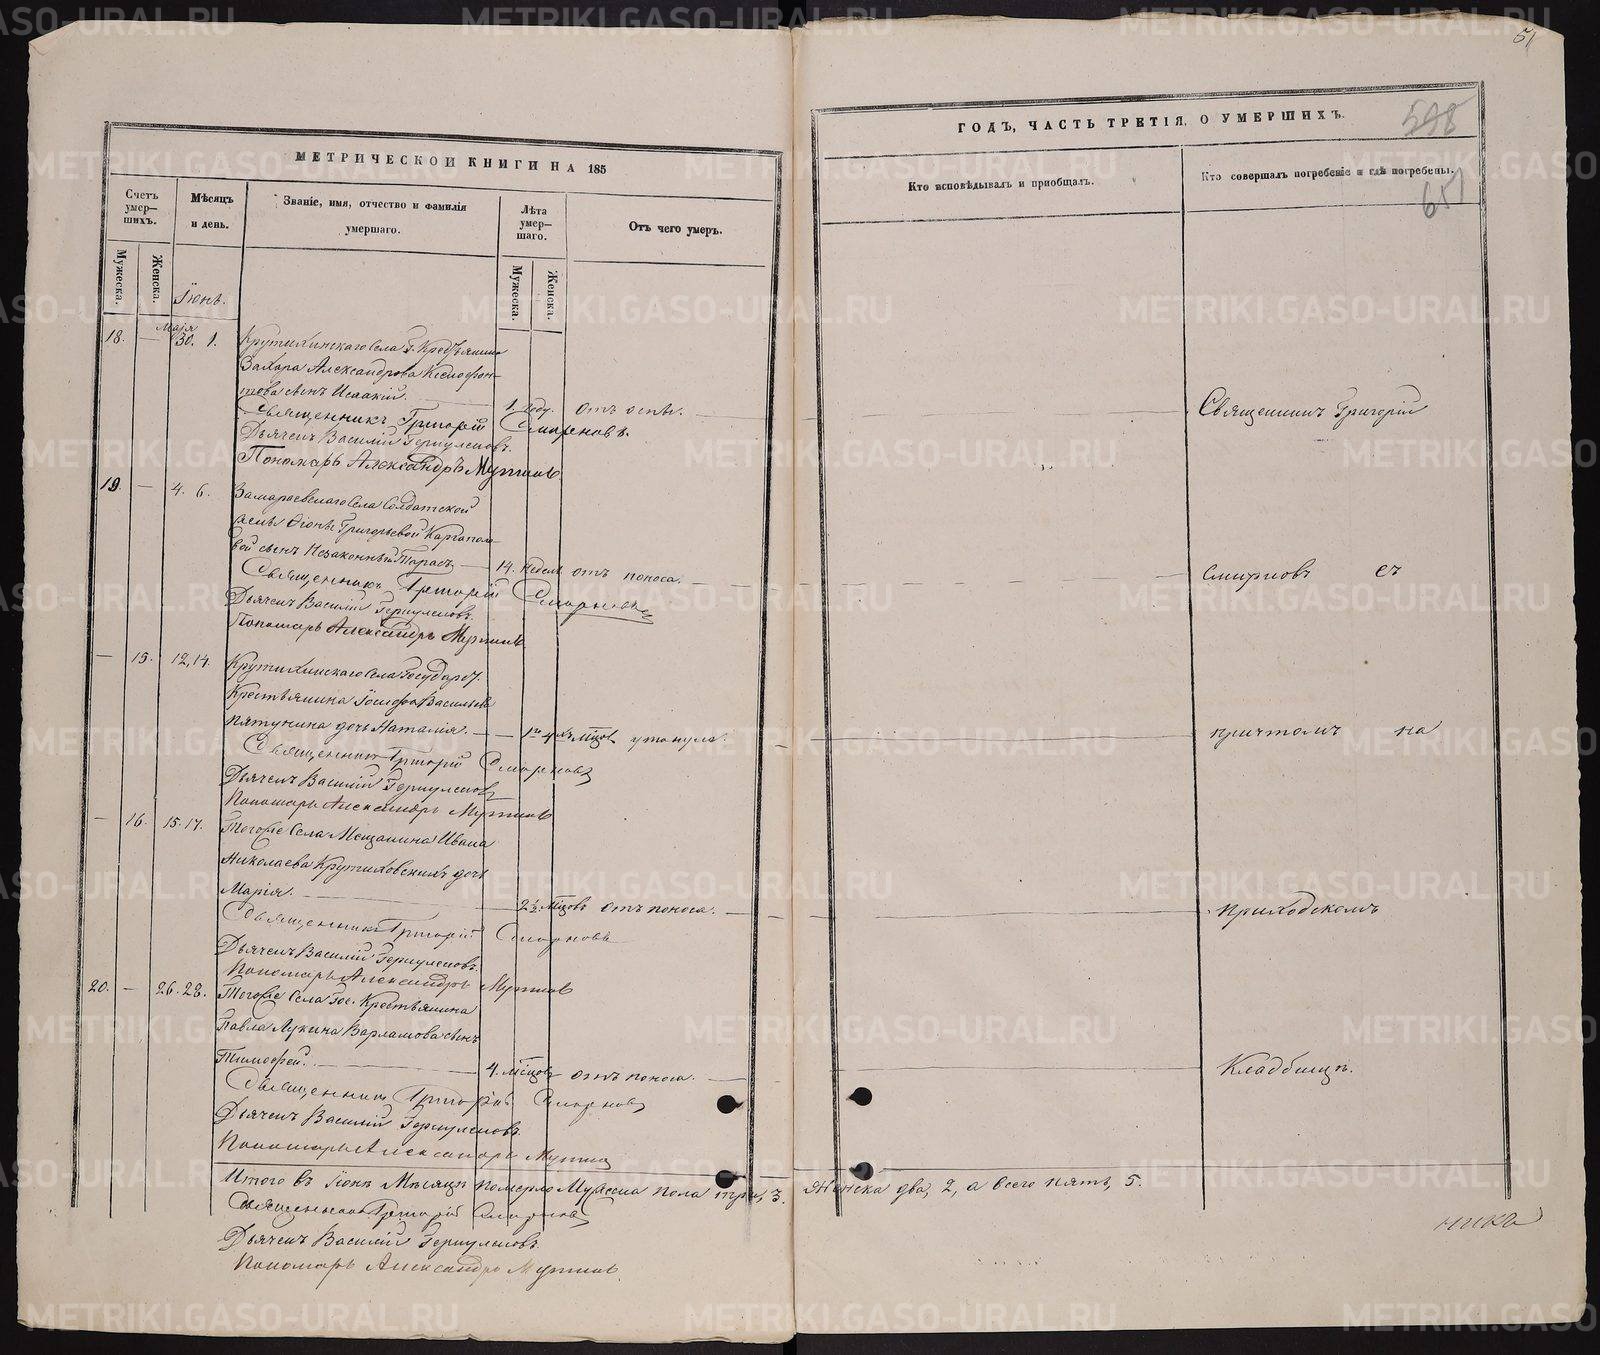 МЕТРИЧЕСКОЙ КНИГИ НА 185
Счетъ умер-
шихъ.
Мужеска.
Женска.
Мѣсяцъ
и день.
Званіе, имя, отчество и фамилія
умершаго.
Лѣта
умер-
шаго.
Мужеска.
Женска.
Отъ чего умеръ.
Іюнь.
Маія
18. — 30. 1. Крутихинскаго Села Г. Крестьянина
Захара Александрова Ксенофон-
това сынъ Исаакій. 1. году. отъ оспы.
Священникъ Григорій Смирновъ.
Дьячекъ Василій Геркулесовъ.
Пономарь Александръ Мутинъ
19. — 4. 6. Замараевскаго Села Солдатской
жены Григорьевой Каргополо-
вой сынъ Незаконный Тарасъ 14. недель отъ поноса.
Священникъ Григорій Смирновъ
Дьячекъ Василій Геркулесовъ.
Пономарь Александръ Мутинъ
— 15. 12, 14. Крутихинскаго Села Государ.
Крестьянина Іосифа Васильева
Пятунина дочь Наталія. утонула.
Священникъ Григорій Смирновъ
Дьячекъ Василій Геркулесовъ
Пономарь Александръ Мутинъ
— 16. 15. 17. Тогоже Села Мещанина Ивана
Николаева Крутиховскихъ дочь
Марія. 2½ мѣсцовъ отъ поноса.
Священникъ Григорій Смирновъ
Дьячекъ Василій Геркулесовъ.
Пономарь Александръ Мутинъ
20. — 26. 28. Тогоже Села Гос. Крестьянина
Павла Лукина Варламова сынъ
Тимофей. 4. мѣсцовъ отъ поноса.
Священникъ Григорій Смирновъ
Дьячекъ Василій Геркулесовъ.
Пономарь Александръ Мутинъ
Итого въ Іюнѣ Мѣсяцѣ померло Мужеска пола три, 3.
Священникъ Григорій Смирновъ
Дьячекъ Василій Геркулесовъ.
Пономарь Александръ Мутинъ.
51
ГОДЪ, ЧАСТЬ ТРЕТІЯ, О УМЕРШИХЪ.
598
651
Кто исповѣдывалъ и пріобщалъ.
Кто совершалъ погребеніе и гдѣ погребены.
Священникъ Григорій
Смирновъ съ
причтомъ на
приходскомъ
Кладбищѣ.
Женска два, 2, а всего пять, 5.
METRIKI.GASO-URAL.RU